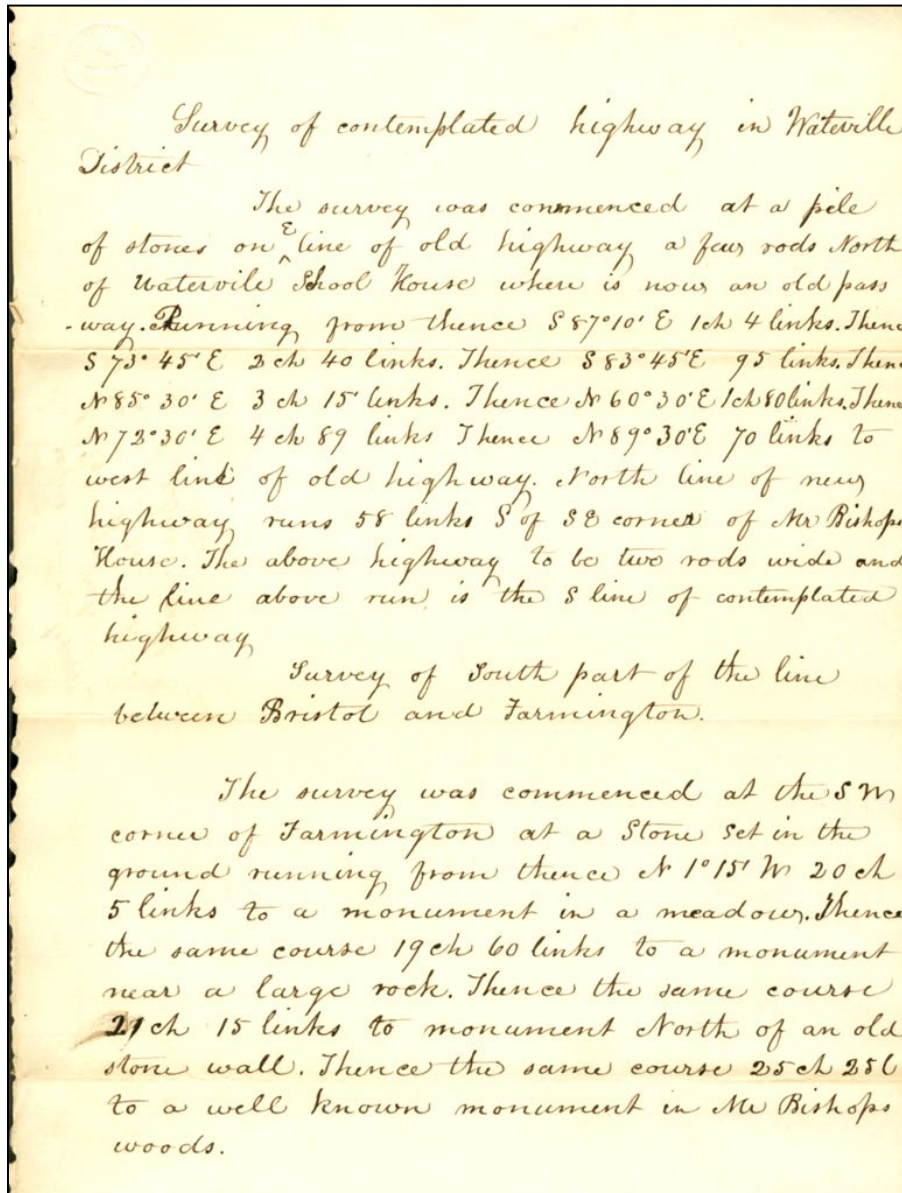 Survey of contemplated highway in Waterville
District
The survey was commenced at a pile
of stones on E line of old highway a few rods North
of Watervile School House where is now an old pass
-way. Running from thence S 87° 10' E 1 ch 4 links. Thence
S 73° 45' E 2 ch 40 links. Thence S 83° 45' E 95 links. Thenc
N 85° 30' E 3 ch 15 links. Thence N 60° 30' E 1 ch 80 links. Thenc
N 72° 30' E 4 ch 89 links Thence N 89° 30' E 70 links to
west line of old highway. North line of new
highway runs 58 links S of SE corner of Mr Bishops
House. The above highway to be two rods wide and
the line above run is the S line of contemplated
highway
Survey of South part of the line
between Bristol and Farmington.
The survey was commenced at the S W
corner of Farmington at a Stone set in the
ground running from thence N 1° 15' W 20 ch
5 links to a monument in a meadow. Thence
the same course 19 ch 60 links to a monument
near a large rock. Thence the same course
21 ch 15 links to monument North of an old
stone wall. Thence the same course 25 ch 25 l
to a well known monument in Mr Bishops
woods.